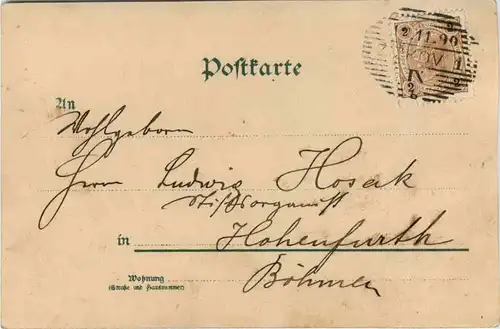 2 11.99
Postkarte
An
Wohlgeborn
Herrn Ludwig Hosak
Stiftsorganist
in Hohenfurth
Böhmen
Wohnung
(Straße und Hausnummer)